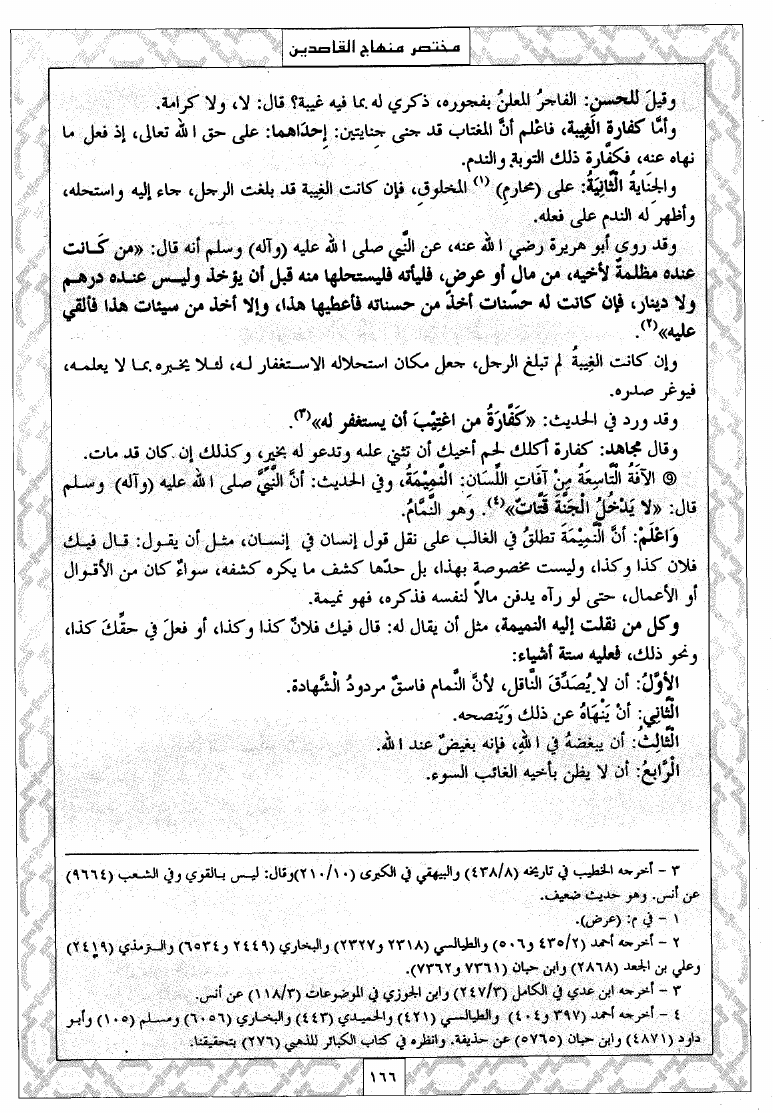 مختصر منهاج القاصدين
وقيلَ للحسن: الفاجرُ المعلنُ بفجوره، ذكري له بما فيه غيبة؟ قال: لا، ولا كرامة.
وأمَّا كفارة الغِيبة، فاعْلم أنَّ المغتاب قد جنى جِنايتين: إحدَاهما: على حق الله تعالى، إذ فعل ما
نهاه عنه، فكفَّارة ذلك التوبة والندم.
والجنايةُ الْثَّانِيَةُ: على (محارم) (١) المخلوق، فإن كانت الغِيبة قد بلغت الرجل، جاء إليه واستحله،
وأظهر له الندم على فعله.
وقد روى أبو هريرة رضي الله عنه، عن النَّبي صلى الله عليه (وآله) وسلم أنه قال: «من كَانت
عنده مظلمةٌ لأخيه، من مال أو عرض، فليأته فليستحلها منه قبل أن يؤخذ وليس عنده درهم
ولا دينار، فإن كانت له حسَنات أخذ من حسناته فأعطيها هذا، وإلا أخذ من سيئات هذا فألقي
عليه»(٢).
وإن كانت الغِيبةُ لم تبلغ الرجل، جعل مكان استحلاله الاستغفار له، لئلا يخبره بما لا يعلمه،
فيوغر صدره.
وقد ورد في الحديث: «كَفَّارَةُ من اغتِيْبَ أن يستغفر له»(٣).
وقال مجاهد: كفارة أكلك لحم أخيك أن تثني عليه وتدعو له بخيرٍ، وكذلك إن كان قد مات.
⑨ الآفَةُ الْتَّاسِعَةُ مِنْ آفَاتِ اللِّسَانِ: النَّمِيْمَةُ، وفي الحديث: أنَّ النَّبيَّ صلى الله عليه (وآله) وسلم
قال: «لا يَدْخُلُ الْجَنَّةَ قَتَّاتٌ»(٤). وَهو النَّمامُ.
وَاعْلَمْ: أنَّ الْنَّمِيْمَةَ تطلقُ في الغالب على نقل قول إنسان في إنسان، مثل أن يقول: قال فيك
فلان كذا وكذا، وليست مخصوصة بهذا، بل حدّها كشف ما يكره كشفه، سواءٌ كان من الأقوال
أو الأعمال، حتى لو رآه يدفن مالاً لنفسه فذكره، فهو نميمة.
وكل من نقلت إليه النميمة، مثل أن يقال له: قال فيك فلانٌ كذا وكذا، أو فعلَ في حقِّكَ كذا،
ونحو ذلك، فعليه ستة أشياء:
الأوَّلُ: أن لا يُصَدِّقَ النَّاقل، لأنَّ النَّمام فاسقٌ مردودُ الْشَّهادة.
الْثَّانِي: أنْ يَنْهَاهُ عن ذلك وَيَنصحه.
الْثَّالثُ: أن يبغضهُ في اللهِ، فإنه بغيضٌ عند الله.
الْرَّابعُ: أن لا يظن بأخيه الغائب السوء.
٣ - أخرجه الخطيب في تاريخه (٤٣٨/٨) والبيهقي في الكبرى (٢١٠/١٠)وقال: ليس بالقوي وفي الشعب (٩٦٦٤)
عن أنس. وهو حديث ضعيف.
١ - في م: (عرض).
٢ - أخرجه أحمد (٤٣٥/٢ و٥٠٦) والطيالسي (٢٣١٨ و٢٣٢٧) والبخاري (٢٤٤٩ و٦٥٣٤) والترمذي (٢٤١٩)
وعلي بن الجعد (٢٨٦٨) وابن حبان (٧٣٦١ و٧٣٦٢).
٣ - أخرجه ابن عدي في الكامل (٢٤٧/٣) وابن الجوزي في الموضوعات (١١٨/٣) عن أنس.
٤ - أخرجه أحمد (٣٩٧ و٤٠٤) والطيالسي (٤٢١) والحميدي (٤٤٣) والبخاري (٦٠٥٦) ومسلم (١٠٥) وأبو
داود (٤٨٧١) وابن حبان (٥٧٦٥) عن حذيفة. وانظره في كتاب الكبائر للذهبي (٢٧٦) بتحقيقنا.
١٦٦